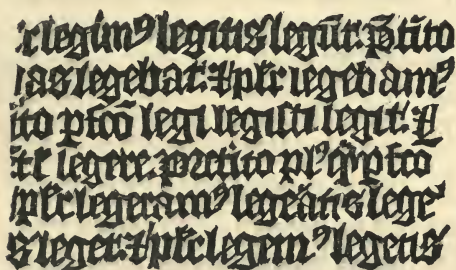 r legim⁹ legitis legūt. p̄tito
as legebat. ⁊ plr legebam⁹
ito pfco legi legisti legit. ⁊
legere. pretito pl⁹q̄pfco
plr legeram⁹ legeātis lege
s leget. ⁊ plr legem⁹ legetis